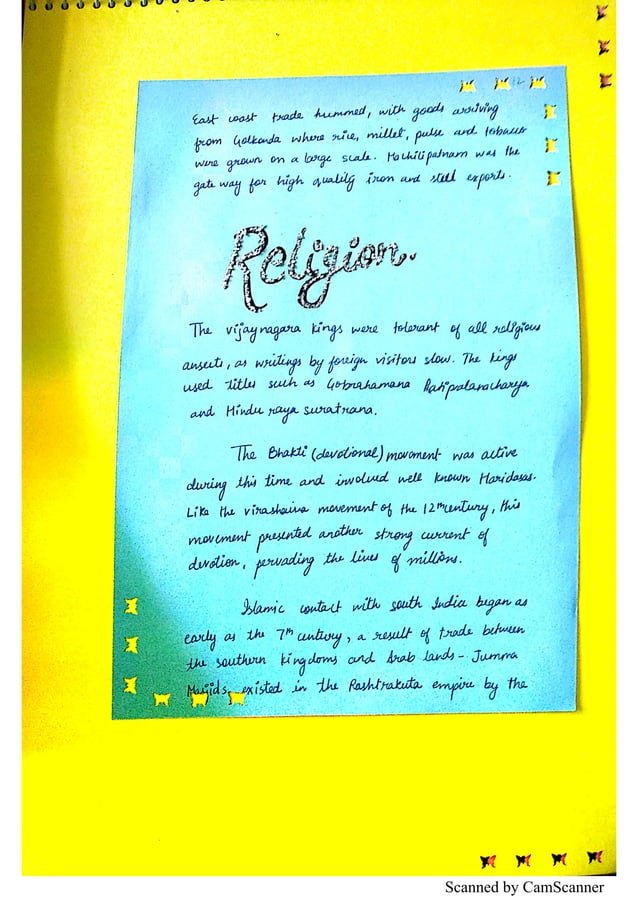 12
East coast trade hummed, with goods arriving
from Golkonda where rice, millet, pulse and tobacco
were grown on a large scale. Machilipatnam was the
gate way for high quality iron and steel exports.
Religion.
The vijaynagara kings were tolerant of all religious
ansects, as writings by foreign visitors slow. The kings
used titles such as Gobrahamana Pratipalanacharya
and Hindu raya suratrana.
The Bhakti (devotional) movement was active
during this time and involved well known Haridasas.
Like the virashaiva movement of the 12th century, this
movement presented another strong current of
devotion, pervading the lives of millions.
Islamic contact with south India began as
early as the 7th century, a result of trade between
the southern kingdoms and Arab lands - Jumma
Masjids existed in the Rashtrakuta empire by the
Scanned by CamScanner